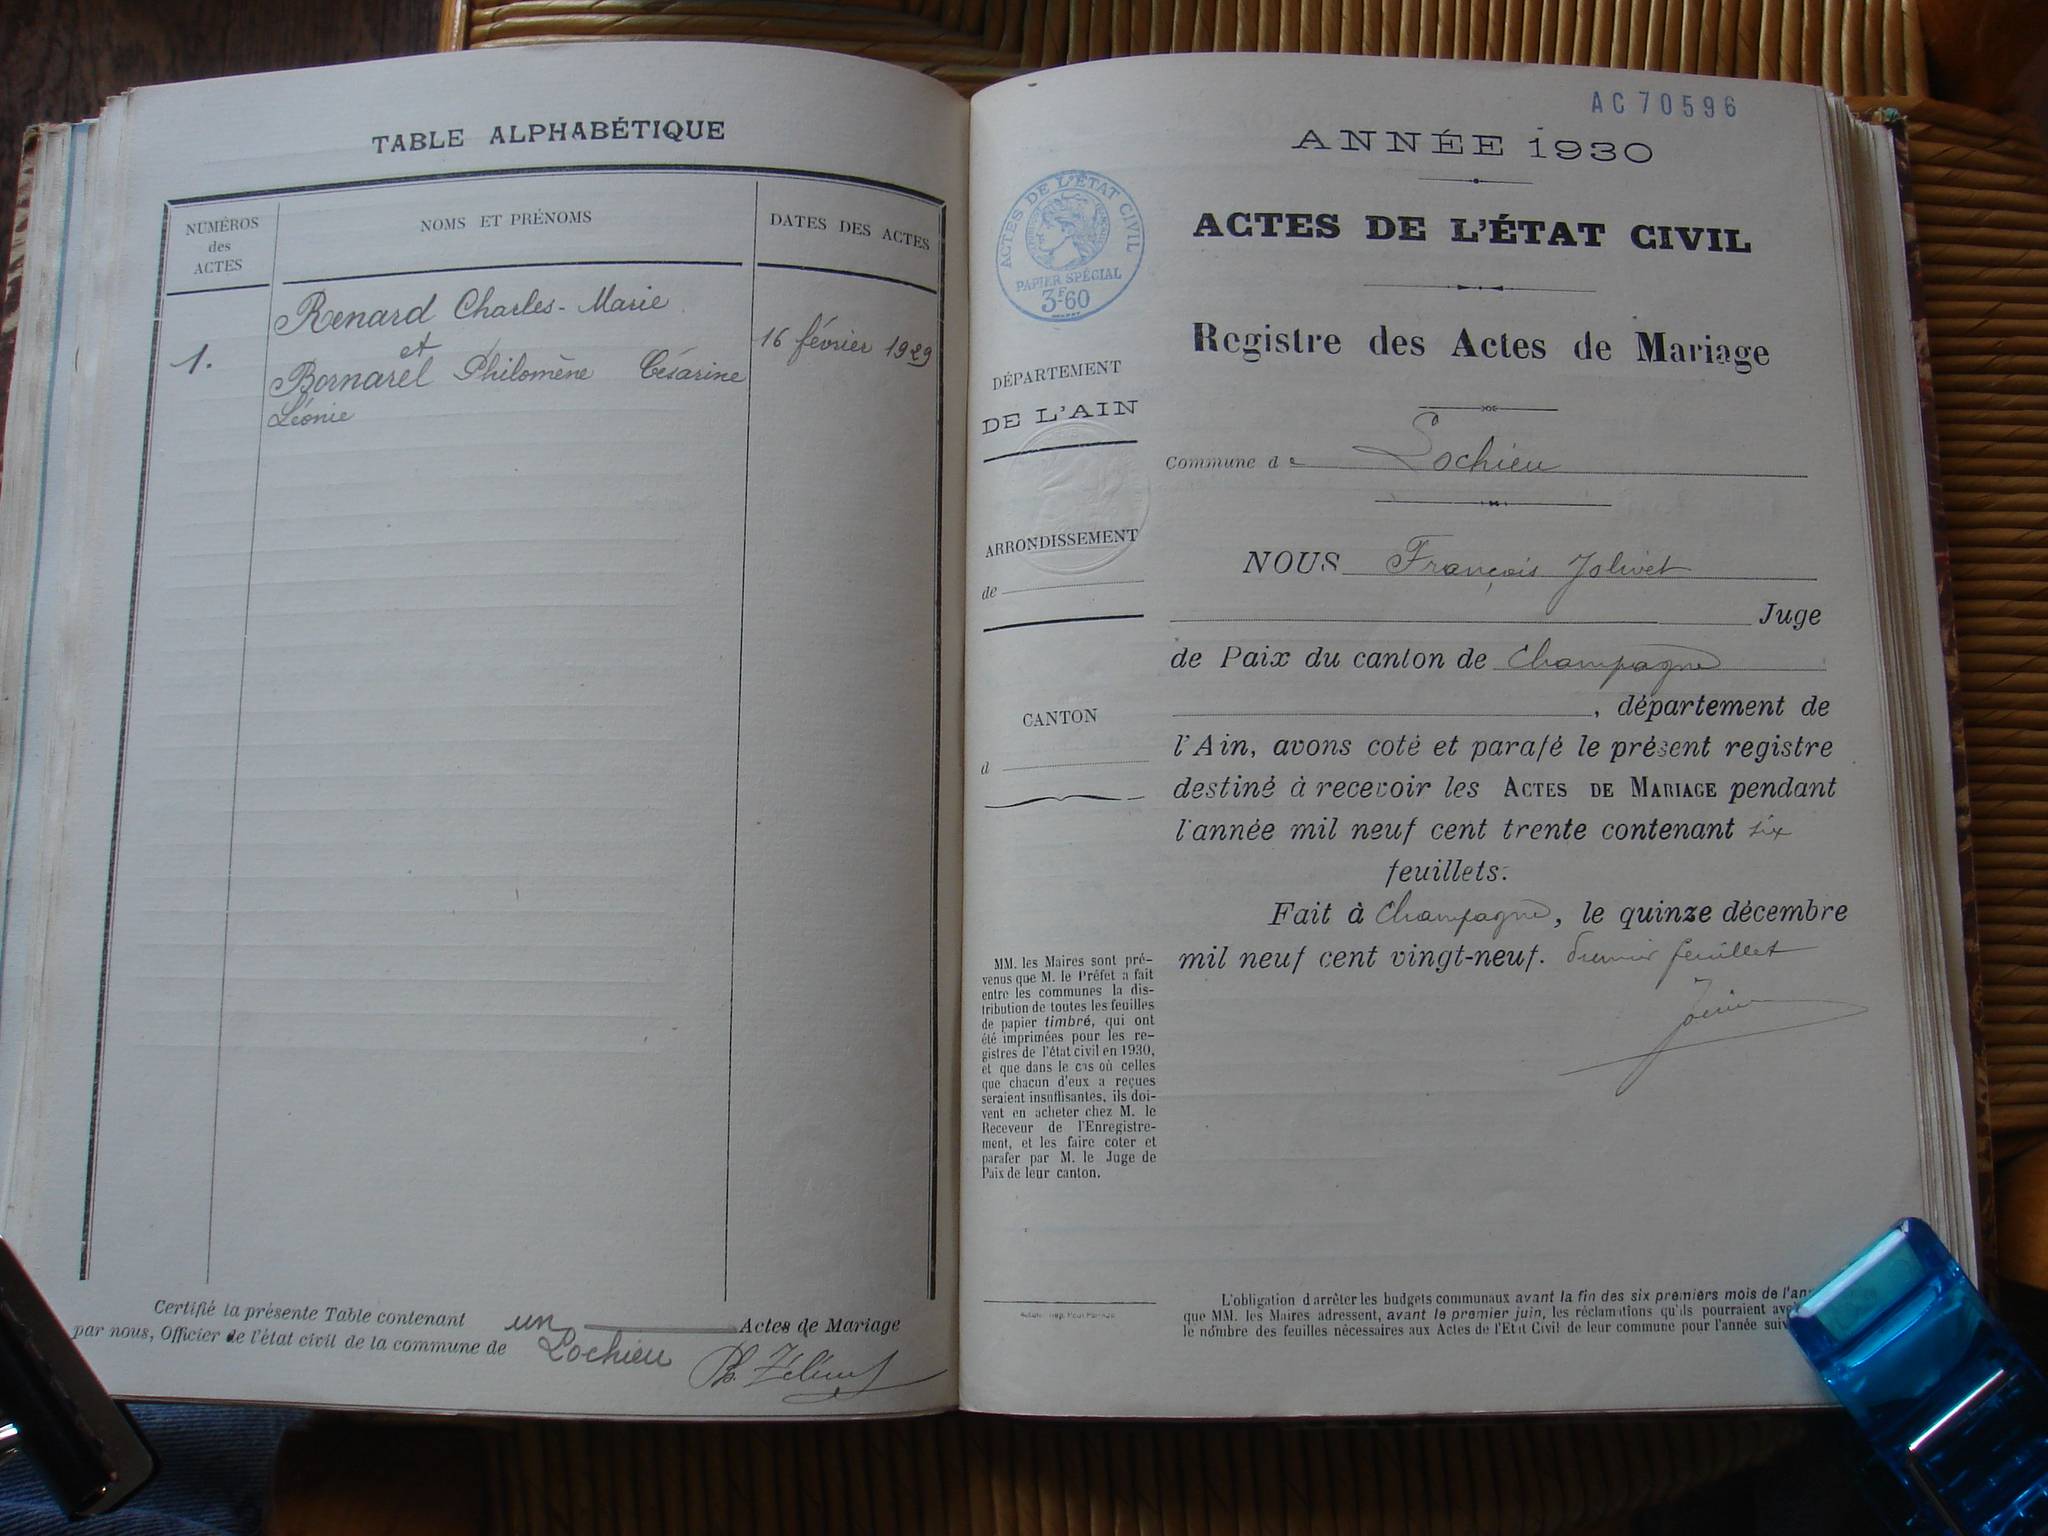 TABLE ALPHABÉTIQUE
NUMÉROS
des
ACTES
NOMS ET PRÉNOMS
DATES DES ACTES
Renard Charles-Marie
et
1.
16 février 1929
Bornarel Philomène Césarine
Léonie
Certifié la présente Table contenant un Actes de Mariage
par nous, Officier de l'état civil de la commune de Lochieu
Ph.
AC70596
ANNÉE 1930
ACTES DE L'ÉTAT CIVIL
Registre des Actes de Mariage
ACTES DE L'ÉTAT CIVIL
PAPIER SPÉCIAL
3F60
DÉPARTEMENT
DE L'AIN
ARRONDISSEMENT
de
CANTON
d
Commune de Lochieu
NOUS François Jolivet
Juge
de Paix du canton de Champagne
, département de
l'Ain, avons coté et parafé le présent registre
destiné à recevoir les ACTES DE MARIAGE pendant
l'année mil neuf cent trente contenant six
feuillets.
Fait à Champagne, le quinze décembre
mil neuf cent vingt-neuf. Premier feuillet
MM. les Maires sont pré-
venus que M. le Préfet a fait
entre les communes la dis-
tribution de toutes les feuilles
de papier timbré, qui ont
été imprimées pour les re-
gistres de l'état civil en 1930,
et que dans le cas où celles
que chacun d'eux a reçues
seraient insuffisantes, ils doi-
vent en acheter chez M. le
Receveur de l'Enregistre-
ment, et les faire coter et
parafer par M. le Juge de
Paix de leur canton.
L'obligation d'arrêter les budgets communaux avant la fin des six premiers mois de l'an
que MM. les Maires adressent, avant le premier juin, les réclamations qu'ils pourraient
le nombre des feuilles nécessaires aux Actes de l'Etat Civil de leur commune pour l'année